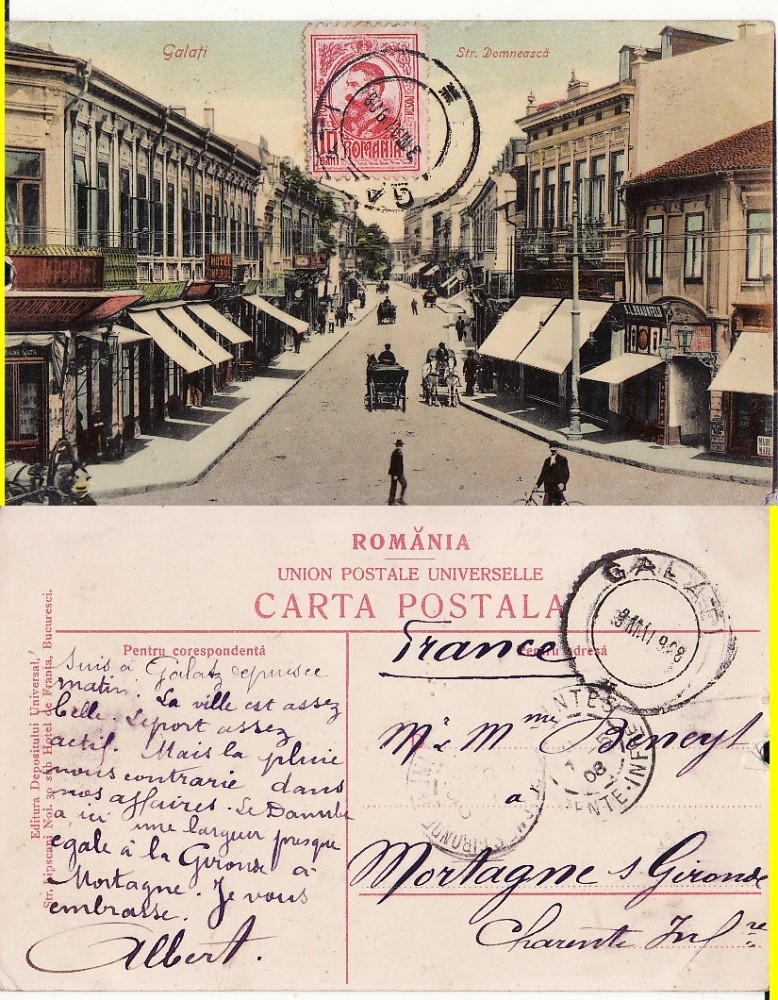 Galați
Str. Domnească
10
BANI
ROMANIA
POSTA
MAI 908
GA
HOTEL
ROMÂNIA
UNION POSTALE UNIVERSELLE
CARTA POSTALA
Pentru corespondentă
Pentru adresă
Editura Depositului Universal,
Str. Lipscani Noi. 30 sub Hotel de Franța, Bucuresci.
GALATI
MAI 908
France
Suis a Galatz depuis ce
matin. La ville est assez
belle. Le port assez
actif. Mais la pluie
nous contrarie dans
nos affaires. Le Danube
a ici une largeur presque
egale à la Gironde à
Mortagne. Je vous
embrasse.
Albert.
Mr & Mme Beneyt
a
Mortagne s Gironde
Charente Infre
08
GIRONDE